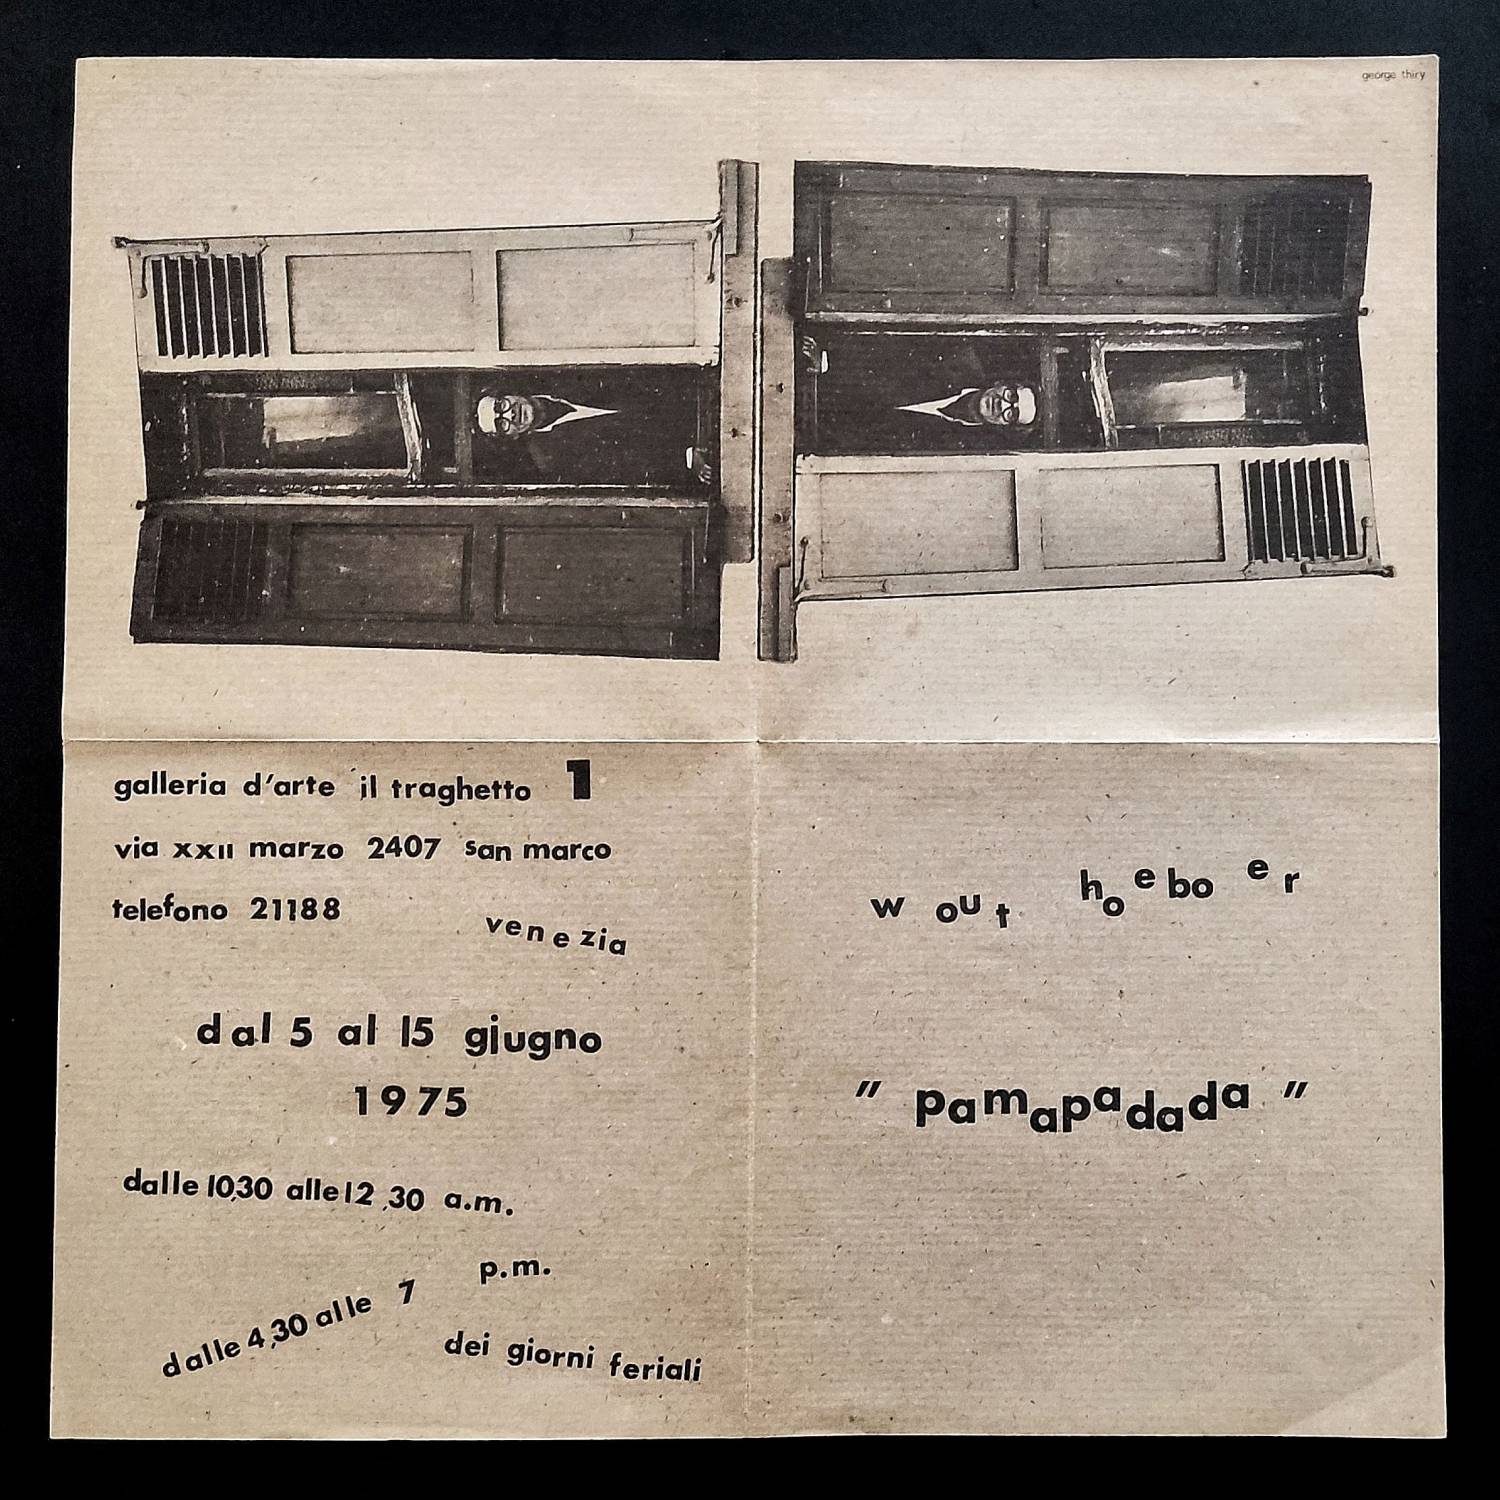 george thiry
galleria d'arte il traghetto 1
via xxii marzo 2407 san marco
telefono 21188
venezia
dal 5 al 15 giugno
1975
dalle 10,30 alle 12,30 a.m.
dalle 4,30 alle 7 p.m.
dei giorni feriali
wout hoeboer
" pamapadada "